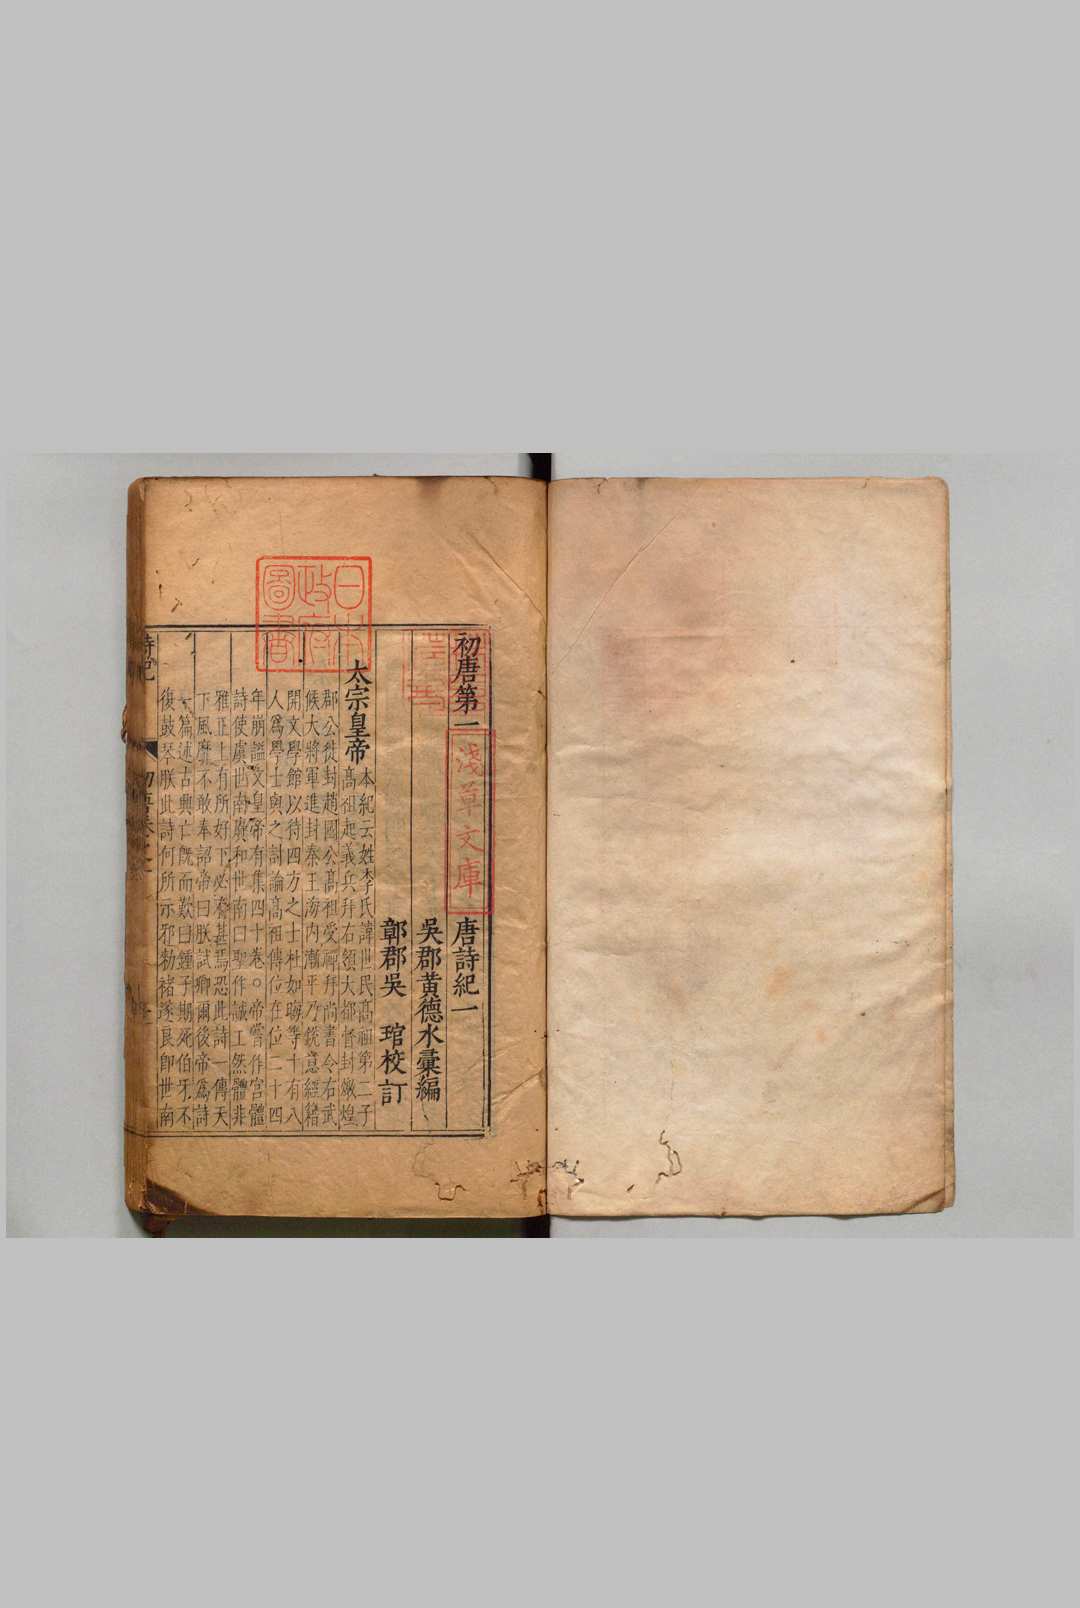 初唐第一 唐詩紀一
吳郡黃德水彙編
鄣郡吳 琯校訂
太宗皇帝
本紀云姓李氏諱世民高祖第二子
高祖起義兵拜右領大都督封燉煌
郡公徙封趙國公高祖受禪拜尚書令右武
候大將軍進封秦王海內漸平乃銳意經籍
開文學館以待四方之士杜如晦等十有八
人爲學士與之討論高祖傳位在位二十四
年崩謚文皇帝有集四十卷○帝嘗作宮體
詩使虞世南賡和世南曰聖作誠工然體非
雅正上有所好下必有甚焉恐此詩一傳天
下風靡不敢奉詔帝曰朕試卿爾後帝爲詩
一篇述古興亡既而歎曰鍾子期死伯牙不
復鼓琴朕此詩何所示邪勑褚遂良即世南
詩紀
初唐卷之一
淺草文庫
日本
政府
圖書